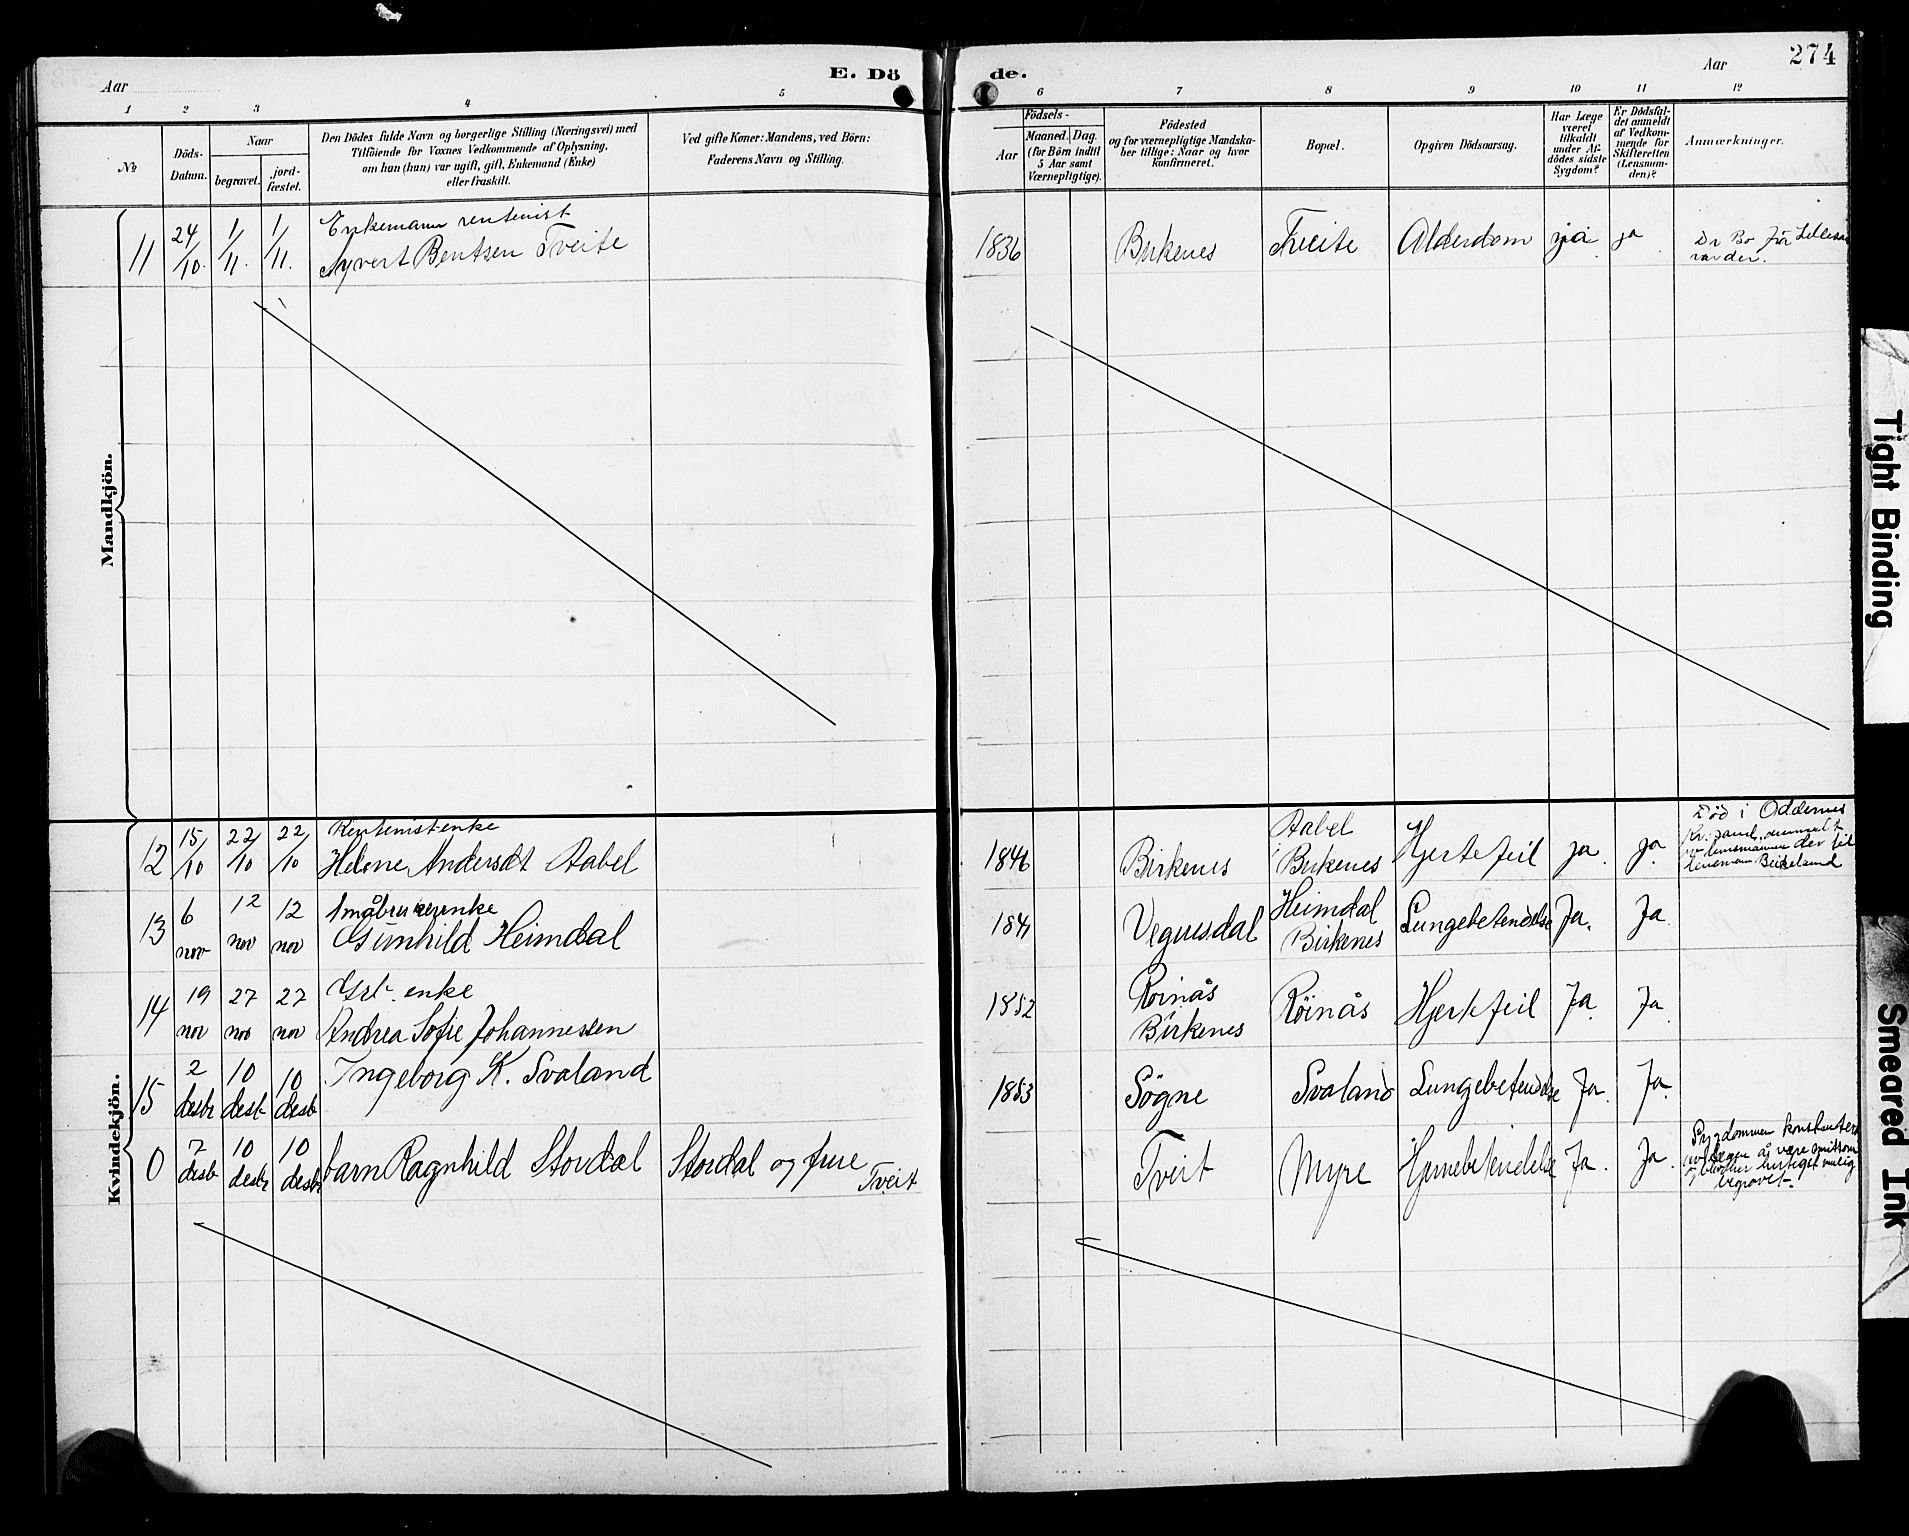 274
E. Dö de.
Aar
Aar
1 2 3 4 5 6 7 8 9 10 11 12
No
Döds-
Datum.
Naar
begravet.
jord-
fæstet.
Den Dödes fulde Navn og borgerlige Stilling (Næringsvei) med
Tilföiende for Voxnes Vedkommende af Oplysning,
om hun (han) var ugift, gift, Enkemand (Enke)
eller fraskilt.
Ved gifte Koner: Mandens, ved Börn:
Faderens Navn og Stilling.
Födsels-
Aar
Maaned. Dag.
(for Börn indtil
5 Aar samt
Værnepligtige).
Födested
og for værnepligtige Mandska-
ber tillige: Naar og hvor
konfirmeret.
Bopæl.
Opgiven Dödsaarsag.
Har Læge
været
tilkaldt
under Af-
dödes sidste
Sygdom?
Er Dödsfal-
det anmeldt
af Vedkom-
mende for
Skifteretten
(Lensman-
den)?
Anmærkninger.
Mandkjön.
Enkemann rentenist
11 24/10. 1/11. 1/11. Syvert Bentsen Tveite 1836 Birkenes Tveite Alderdom ja ja
Kvindekjön.
Rentenistenke
12 15/10 22/10 22/10 Helene Andersdt Aabel 1846 Birkenes Aabel
Birkenes Hjertefeil ja. ja.
Død i Oddernes
lensmann Beikeland
Småbrukerenke
13 6 nov 12 nov 12 nov Gunhild Heimdal Vegusdal Heimdal
Birkenes Lungebetendelse Ja. Ja
Grb. enke
14 19 nov 27 nov 27 nov Andrea Sofie Johannessen 1852 Röinås
Birkenes Röinås Hjertefeil Ja Ja.
15 2 desbr 10 desbr 10 desbr Ingeborg K. Svaland 1853 Sögne Svaland Lungebetendelse Ja. Ja.
0 7 desbr 10 desbr 10 desbr barn Ragnhild Stordal Stordal og frue
Tveit Tveit Myre Hjernebetendelse Ja. Ja.
Sygdommen
begravet.
Tight Binding
Smeared Ink